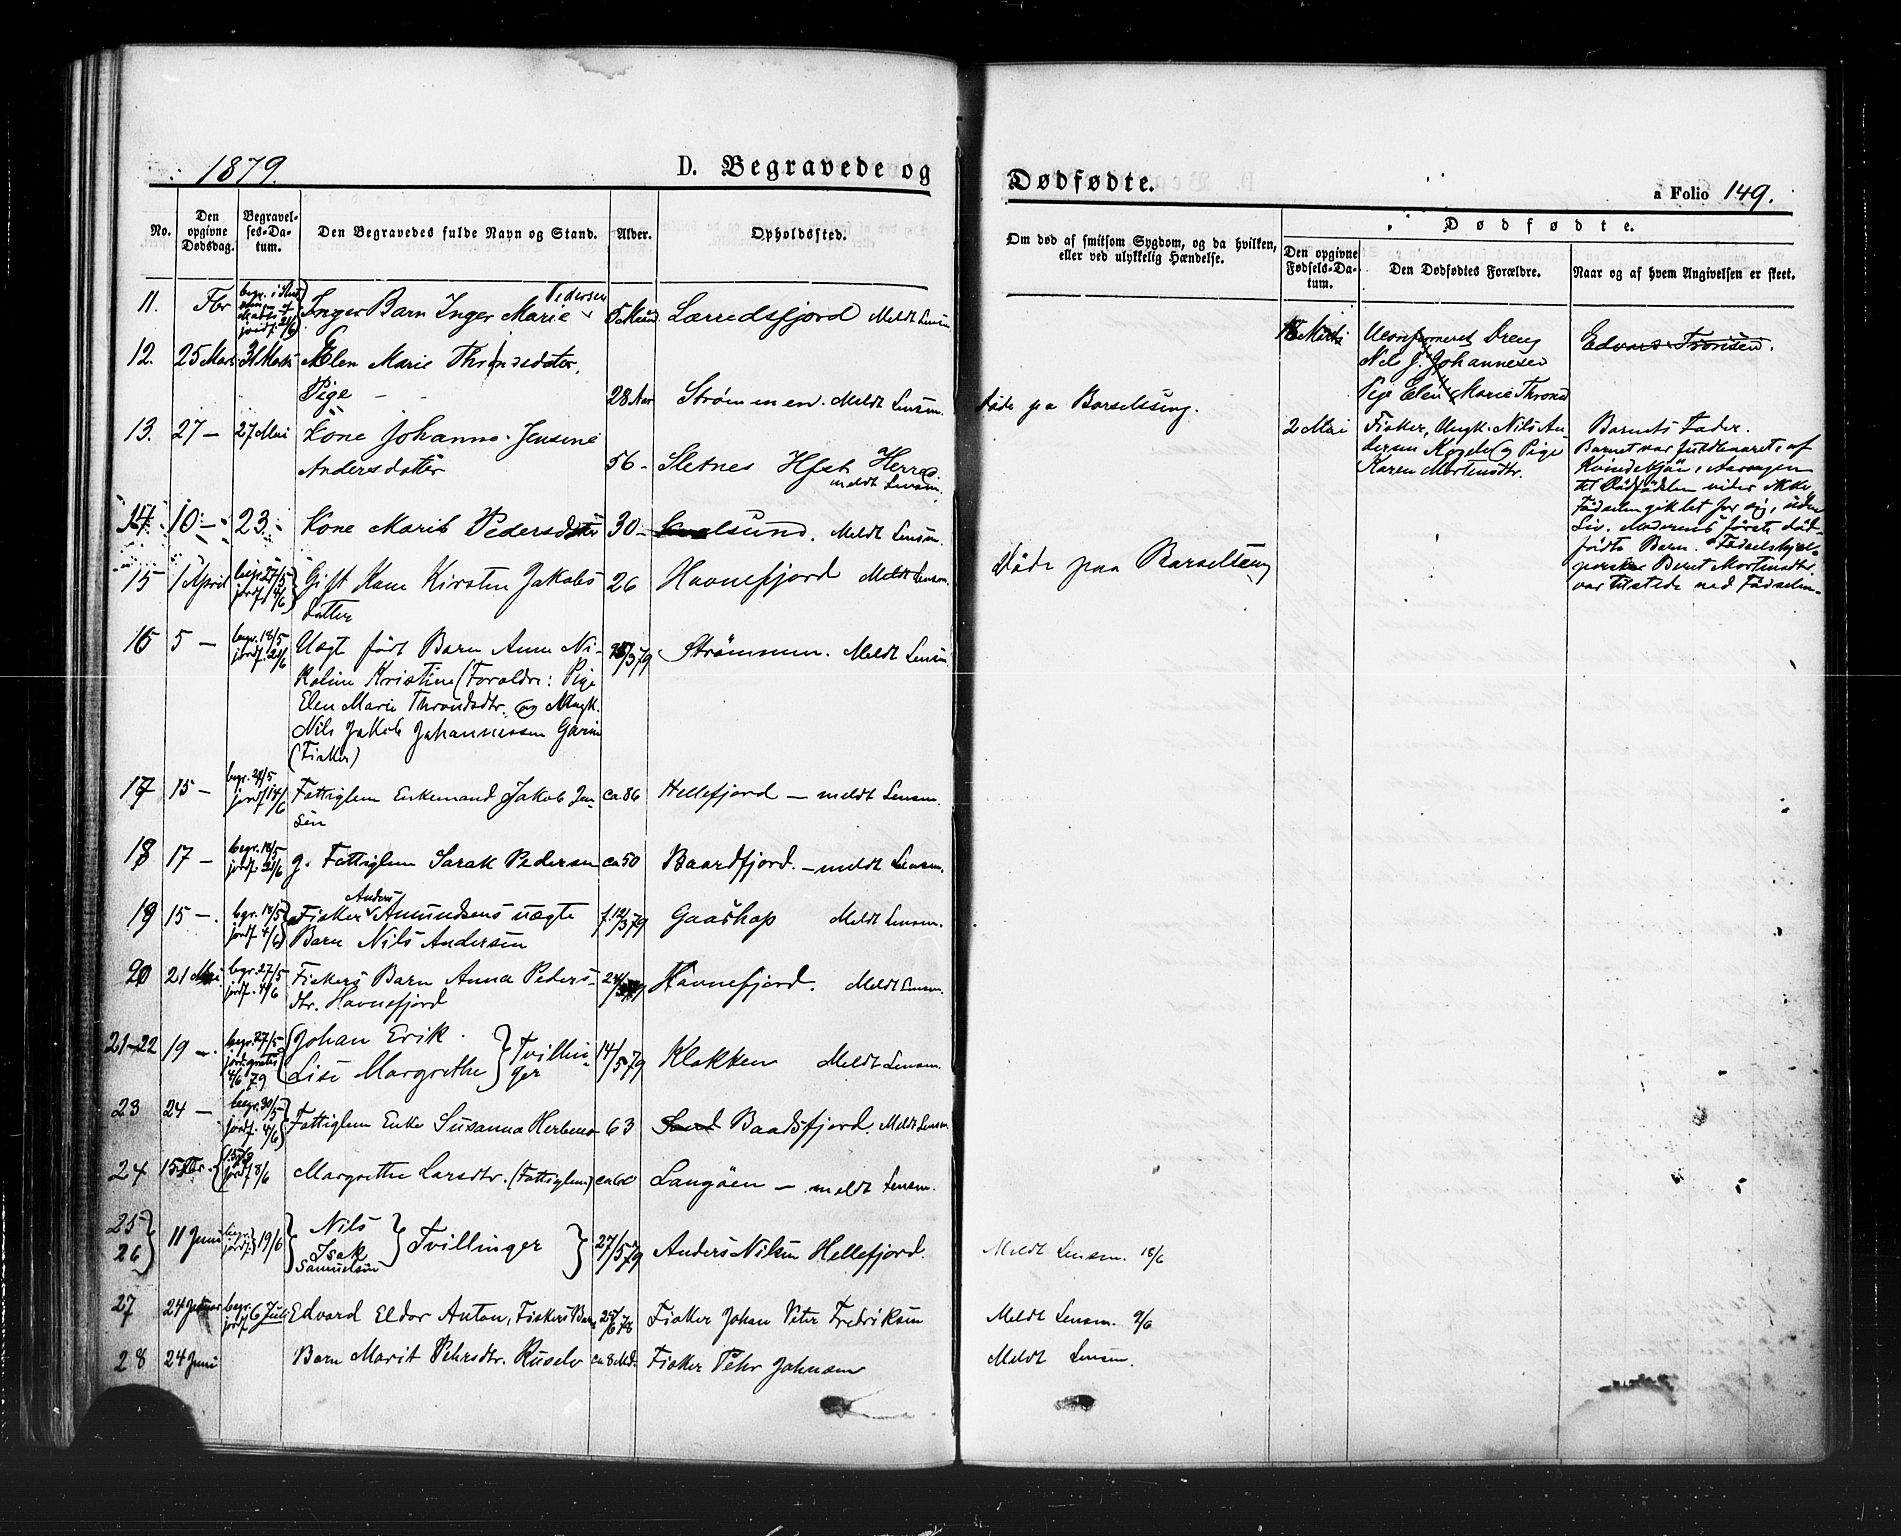 1879.
D. Begravede og
No.
Den opgivne Dødsdag.
Begravelses-Datum.
Den Begravedes fulde Navn og Stand.
Alder.
Opholdssted.
11. Fbr Barn Inger Marie Pedersen 5 Laurredsfjord Meldt Lensm.
12. 25 Marts 31 Marts Elen Marie Throndsdater,
Pige 28 Aar Strømmen. Meldt Lensm.
13. 27 — 27 Mai Kone Johanne Jensine
Andersdatter 56 - Sletnes Hfst Herred
meldt Lensm.
14. 10 — 23 - Kone Marit Pedersdatter 30 - Kvalsund. Meldt Lensm.
15 1 April begr. 27/5 jordf. 4/6 Gift Kone Kirsten Jakobs 26 Havnefjord Meldt Lensm.
datter
16 5 — begr. 18/5 jordf. 21/6 Uægt født Barn Anne Ni- /3 79 Strømmen. Meldt Lensm.
koline Kristine (Forældre: Pige
Elen Marie Throndsdtr. og Ungk.
Nils Jakob Johannessen
(Fisker)
17 15 — begr. 24/5 jordf. 14/6 Fattiglem Enkemand Jakob Jen- ca. 86 Hellefjord — meldt Lensm.
sen
18 17 — begr. 18/5 jordf. 21/6 g. Fattiglem Sarak Pedersen ca 50 Baardfjord. — meldt Lensm.
19 15 —. begr. 18/5 jordf. 4/6 Fisker Anders Amundsens uægte f. 12/3 79 Gaashop Meldt Lensm.
Barn Nils Andersen
20 21 Mai. begr. 27/5 jordf. 4/6 Fiskers Barn Anna Peders- 24/ 79 Havnefjord. Meldt Lensm.
dtr. Havnefjord
21-22 19 —. begr. 27/5 jord. gratis 4/6 79 Johan Erik
Lise Margrethe } Tvillin-
ger 14/5 79 Klokken Meldt Lensm.
23 24 — begr. 30/5 jordf. 4/6 Fattiglem Enke Susanna 63 Sand Baadsfjord. Meldt Lensm.
24 15 Fbr. jordf 8/6 Margrethe Larsdtr. (Fattiglem) ca 60 Langøen — meldt Lensm.
25
26 } 11 Juni begr. jordf. } 19/6 Nils
Isak
Samuelsen } Tvillinger 27/5 79 Anders Nilsen Hellefjord.
27 24 begr. jordf. 6 Juli Edvard Eldor Anton, Fiskers Barn 25/6 78 Fisker Johan Peter Fredriksen
28 24 Juni Barn Marit Pehrsdtr. Ruselv ca 8 Md. Fisker Pehr Johnsen
Dødfødte.
a Folio 149.
Om død af smitsom Sygdom, og da hvilken,
eller ved ulykkelig Hændelse.
Dødfødte.
Den opgivne Fødsels-Datum.
Den Dødfødtes Forældre.
Naar og af hvem Angivelsen er skeet.
Døde pa Barselseng.
Døde paa Barselseng
Meldt Lensm. 18/6
Meldt Lensm. 9/6
Meldt Lensm.
Marts Uconfirmeret Dreng
Nils J. Johannesen
Pige Elen Marie Thronds
Edvard Tronsen.
2 Mai Fisker, Ungk. Nils An-
dersen og Pige
Karen Mortensdtr.
Barnets Fader.
Barnet var fuldbaaret, af
Kvindekjøn, Aarsagen
til Dødfødslen vides ikke
Fødselen gik let for sig, uden
Liv. Moderens første død-
fødte Barn. Fødselshjæl-
perske Beret Mortensdtr.
var tilstede ved Fødselen-